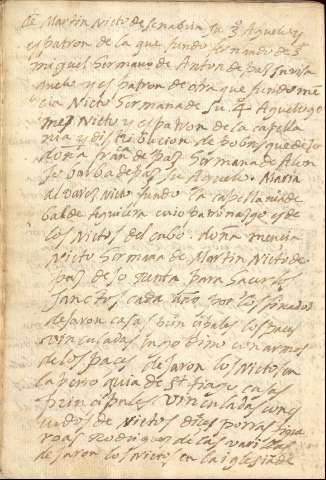 de Martin Nieto de senabria su 3º Aguelo y
es patron de la que fundo fernando de S.
miguel Hermano de Anton de paz su visa
Auelo y es patron de otra que fundo me
cia Nieto Hermana de su 4º Aguelo go
mes Nieto y es patron de la capella
nia y distribucion de pobres que dejo
doña fran.ca de paz Hermana de Alon
so barba de paz su Aguelo Maria
albares Nieto fundo la capellania de
balde Aguilera cuio patronazgo es de
los Nietos del cubo. doña mencia
Nieto Hermana de Martin Nieto de
paz dejo Junta para
Sanctos cada año por los
dejaron casas prinçipales los paces
vinculadas con armas
de los paces dejaron los Nietos en
la perroquia de St tiago casas
prinçipales vinculadas con es
cudos de Nietos
Rodriguez de las varillas
dejaron los Nietos en la iglesia de